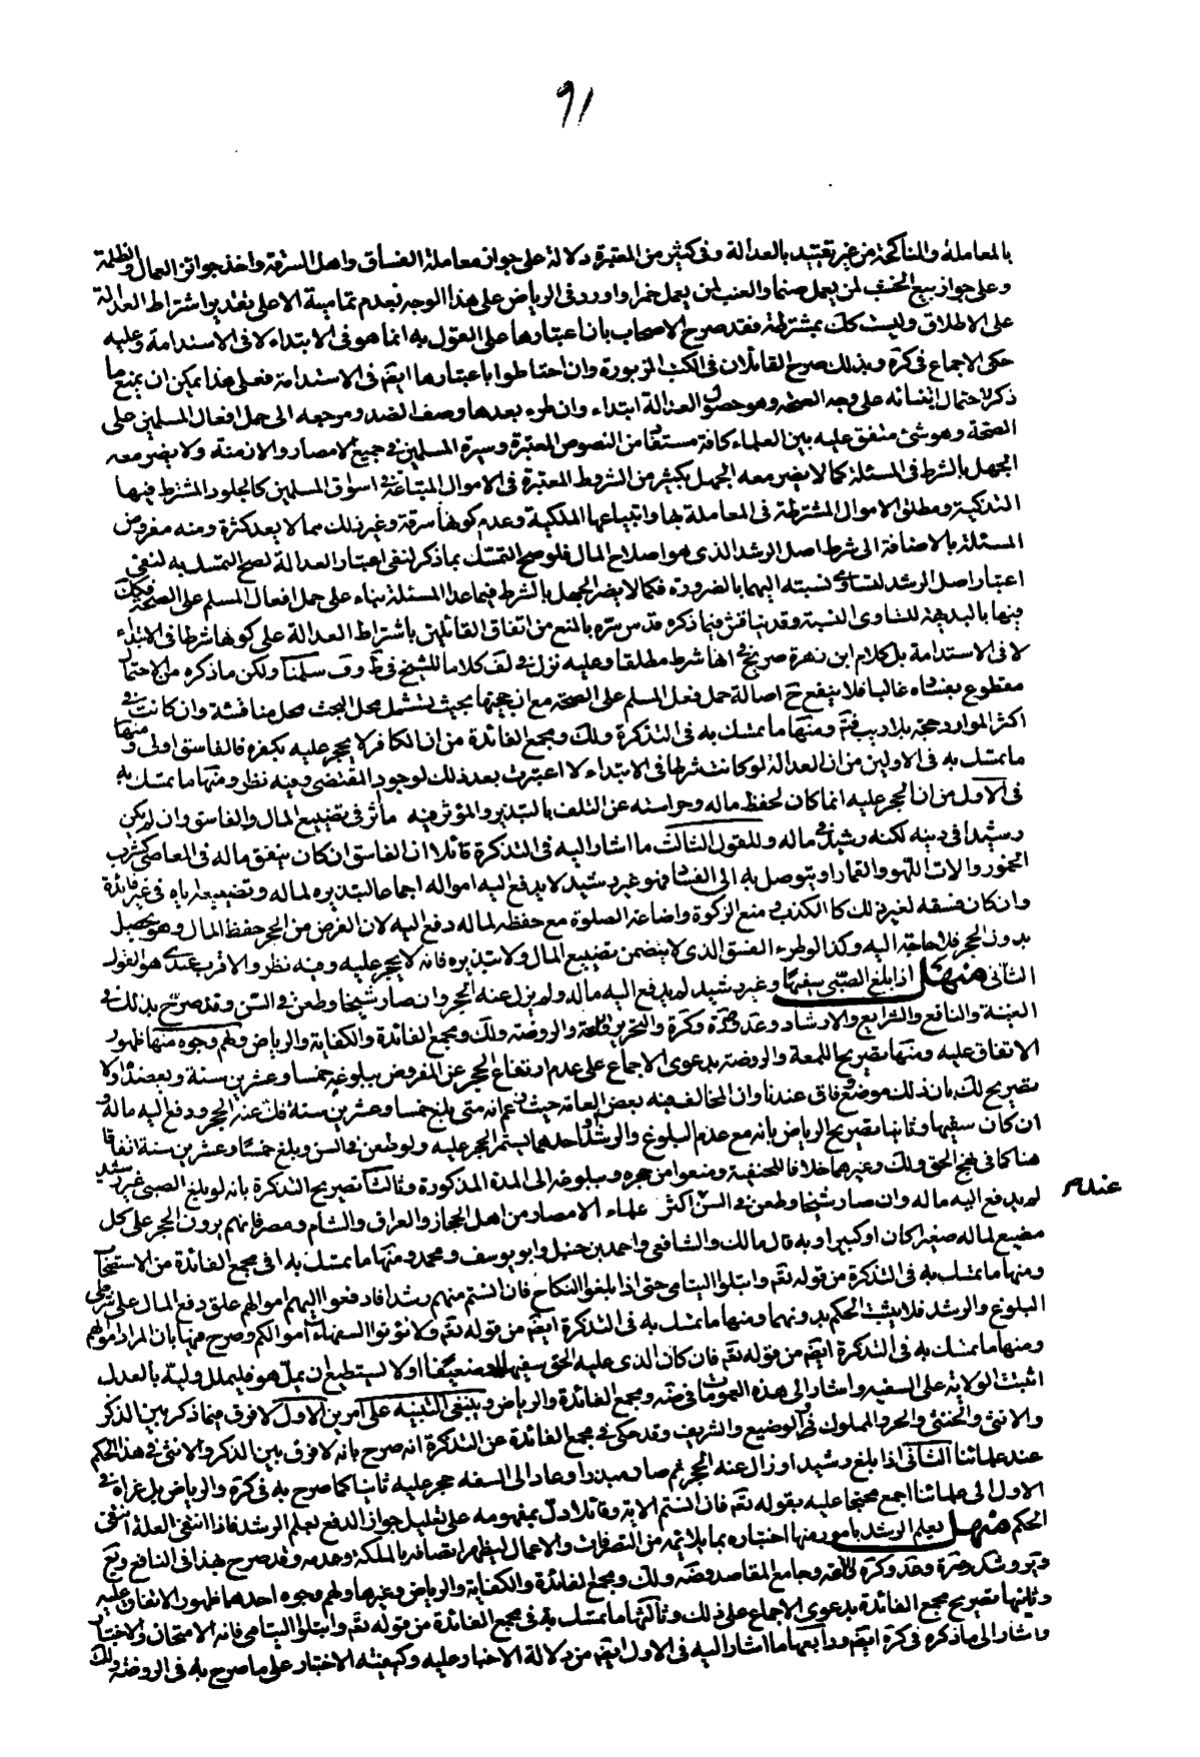 ٩١
بالمعاملة والمناكحة من غير تقييد بالعدالة وفى كثير من المعتبرة دلالة على جواز معاملة الفساق واهل السرقة واخذ جوائز العمال والظلمة
وعلى جواز بيع الخشب لمن يعمل صنما والعنب لمن يعمل خمرا واورد فى الرياض على هذا الوجه بعدم تماميته الا على تقدير اشتراط العدالة
على الاطلاق وليست كك بمشترطة فقد صرح الاصحاب بان اعتبارها على القول به انما هو فى الابتداء لا فى الاستدامة وعليه
حكى الاجماع فى كرة وبذلك صرح القائلان فى الكتب المزبورة وان احتاطوا باعتبارها ايضم فى الاستدامة فعلى هذا يمكن ان يمنع ما
ذكر لاحتمال ابتنائه على وجه الصحة وهو حصول العدالة ابتداء وان طرء بعدها وصف الضد ومرجعه الى حمل افعال المسلمين على
الصحة وهو شئ متفق عليه بين العلماء كافة مستفادا من النصوص المعتبرة وسيرة المسلمين فى جميع الامصار والازمنة ولا يضر معه
الجهل بالشرط فى المسئلة كما لا يضر معه الجهل بكثير من الشروط المعتبرة فى الاموال المبتاعة فى اسواق المسلمين كالجلود المشترط فيها
التذكية ومطلق الاموال المشترطة فى المعاملة بها وابتياعها الملكية وعدم كونها سرقة وغير ذلك مما لا يعد كثرة ومنه مفروض
المسئلة بالاضافة الى شرط اصل الرشد الذى هو اصلاح المال فلو صح التمسك بما ذكر لنفى اعتبار العدالة لصح التمسك به لنفى
اعتبار اصل الرشد لتساوى نسبته اليهما بالضرورة فكما لا يضر الجهل بالشرط فيما عدا المسئلة بناء على حمل افعال المسلم على الصحة فكك
فيها بالبديهة للتساوى النسبة وقد يناقش فيما ذكره قدس سره بالمنع من اتفاق القائلين باشتراط العدالة على كونها شرطا فى الابتداء
لا فى الاستدامة بل كلام ابن زهرة صريح فى انها شرط مطلقا وعليه نزل فى لف كلاما للشيخ فى ط وف سلمنا ولكن ما ذكره من الاحتمال
مقطوع بفساده غالبا فلا ينفع ح اصالة حمل فعل المسلم على الصحة مع ان حجيتها بحيث يشتمل محل البحث محل مناقشة وان كانت فى
اكثر الموارد حجة بلا ريب فتم ومنها ما تمسك به فى التذكرة ولك ومجمع الفائدة من ان الكافر لا يحجر عليه بكفره فالفاسق اولى ومنها
ما تمسك به فى الاولين من ان العدالة لو كانت شرطا فى الابتداء لاعتبرت بعد ذلك لوجود المقتضى وفيه نظر ومنها ما تمسك به
فى الاول من ان الحجر عليه انما كان لحفظ ماله وحراسته عن التلف بالتبذير والمؤثر فيه مأثر فى تضييع المال والفاسق وان لم يكن
رشيدا فى دينه لكنه رشيد فى ماله وللقول الثالث ما اشار اليه فى التذكرة قائلا ان الفاسق ان كان ينفق ماله فى المعاصى كشرب
الخمور والات اللهو والقمار او يتوصل به الى الفساد فهو غير رشيد لا يدفع اليه امواله اجماعا لتبذيره لماله وتضييعه اياه فى غير فائدة
وان كان فسقه لغير ذلك كالكذب و منع الزكوة واضاعة الصلوة مع حفظه لماله دفع اليه لان الغرض من الحجر حفظ المال وهو يحصل
بدون الحجر فلا حاجة اليه وكذا لو طرء الفسق الذى لا يتضمن تضييع المال ولا تبذيره فانه لا يحجر عليه وفيه نظر والاقرب عندى هو القول
الثانى منهل اذا بلغ الصبى سفيها وغير رشيد لم يدفع اليه ماله ولم يزل عنه الحجر وان صار شيخا وطعن فى السن وقد صرح بذلك فى
الغنية والنافع والشرايع والارشاد وعد وكرة والتحرير واللمعة والروضة ولك ومجمع الفائدة والكفاية والرياض ولهم وجوه منها ظهور
الاتفاق عليه ومنها تصريح اللمعة والروضة بدعوى الاجماع على عدم ارتفاع الحجر عن المفروض ببلوغه خمسا وعشرين سنة ويعضده اولا
تصريح لك بان ذلك موضع وفاق عندنا وان المخالف فيه بعض العامة حيث زعم انه متى بلغ خمسا وعشرين سنة فك عنه الحجر ودفع اليه ماله و
ان كان سفيها وثانيا تصريح الرياض بانه مع عدم البلوغ والرشد او احدهما يستمر الحجر عليه ولو طعن فى السن وبلغ خمسا وعشرين سنة اتفاقا
هنا كما فى نهج الحق ولك وغيرهما خلافا للحنفية ومنعوا من حجره ببلوغه الى المدة المذكورة وثالثا تصريح التذكرة بانه لو بلغ الصبى غير رشيد
لم يدفع اليه ماله وان صار شيخا وطعن فى السن اكثر علماء الامصار من اهل الحجاز والعراق والشام ومصر فانهم يرون الحجر على كل
عند
مضيع لماله صغيرا كان او كبيرا وبه قال مالك والشافعى واحمد بن حنبل وابو يوسف ومحمد ومنها ما تمسك به فى مجمع الفائدة من الاستصحاب
ومنها ما تمسك به فى التذكرة من قوله تعم وابتلوا اليتامى حتى اذا بلغوا النكاح فان انستم منهم رشدا فادفعوا اليهم اموالهم علق دفع المال على شرطى
البلوغ والرشد فلا يثبت الحكم بدونهما ومنها ما تمسك به فى التذكرة ايضم من قوله تعم ولا تؤتوا السفهاء اموالكم وصرح فيها بان المراد اموالهم
ومنها ما تمسك به فى التذكرة ايضم من قوله تعم فان كان الذى عليه الحق سفيها او ضعيفا او لا يستطيع ان يمل هو فليملل وليه بالعدل
اثبت الولاية على السفيه واشار الى هذه العمومات فى ضه ومجمع الفائدة والرياض وينبغى التنبيه على امرين الاول لا فرق فيما ذكر بين الذكر
والانثى والخنثى والحر والمملوك والوضيع والشريف وقد حكى فى مجمع الفائدة عن التذكرة انه صرح بانه لا فرق بين الذكر والانثى فى هذا الحكم
عند علمائنا الثانى اذا بلغ رشيدا وزال عنه الحجر ثم صار مبذرا وعاد الى السفه حجر عليه ثانيا كما صرح به فى كرة والرياض بل عزاه فى
الاول الى علمائنا اجمع محتجا عليه بقوله تعم فان انستم الاية وقائلا دل بمفهومه على تعليل جواز الدفع بعلم الرشد فاذا انتفى العلة انتفى
الحكم منهل يعلم الرشد بامور منها اختباره بما يلائمه من التصرفات والاعمال ليظهر اتصافه بالملكة وعدمه وقد صرح بهذا فى النافع ويع
وير وشد وعد وكرة واللمعة وجامع المقاصد وضه ولك ومجمع الفائدة والكفاية والرياض وغيرها ولهم وجوه احدها ظهور الاتفاق عليه
وثانيها تصريح مجمع الفائدة بدعوى الاجماع على ذلك وثالثها ما تمسك به فى مجمع الفائدة من قوله تعم وابتلوا اليتامى فانه الامتحان والاختبار
واشار الى ما ذكره فى كرة ايضم ورابعها ما اشار اليه فى الاول ايضم من دلالة الاخبار عليه وكيفيته الاختبار على ما صرح به فى الروضة ولك